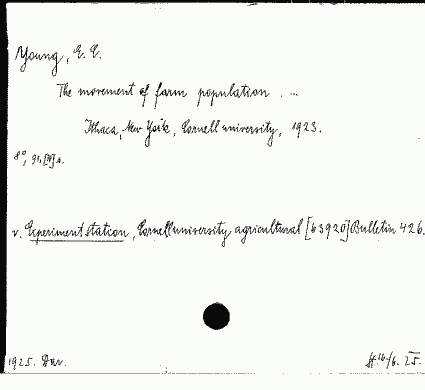 Young, E. C.
The movement of farm population . ...
Ithaca, New York, Cornell university, 1923.
8°, 91, [4] s.
v. Experiment station, Cornell university agricultural [63920] Bulletin 426.
1925. Dar.
16/6. 25.